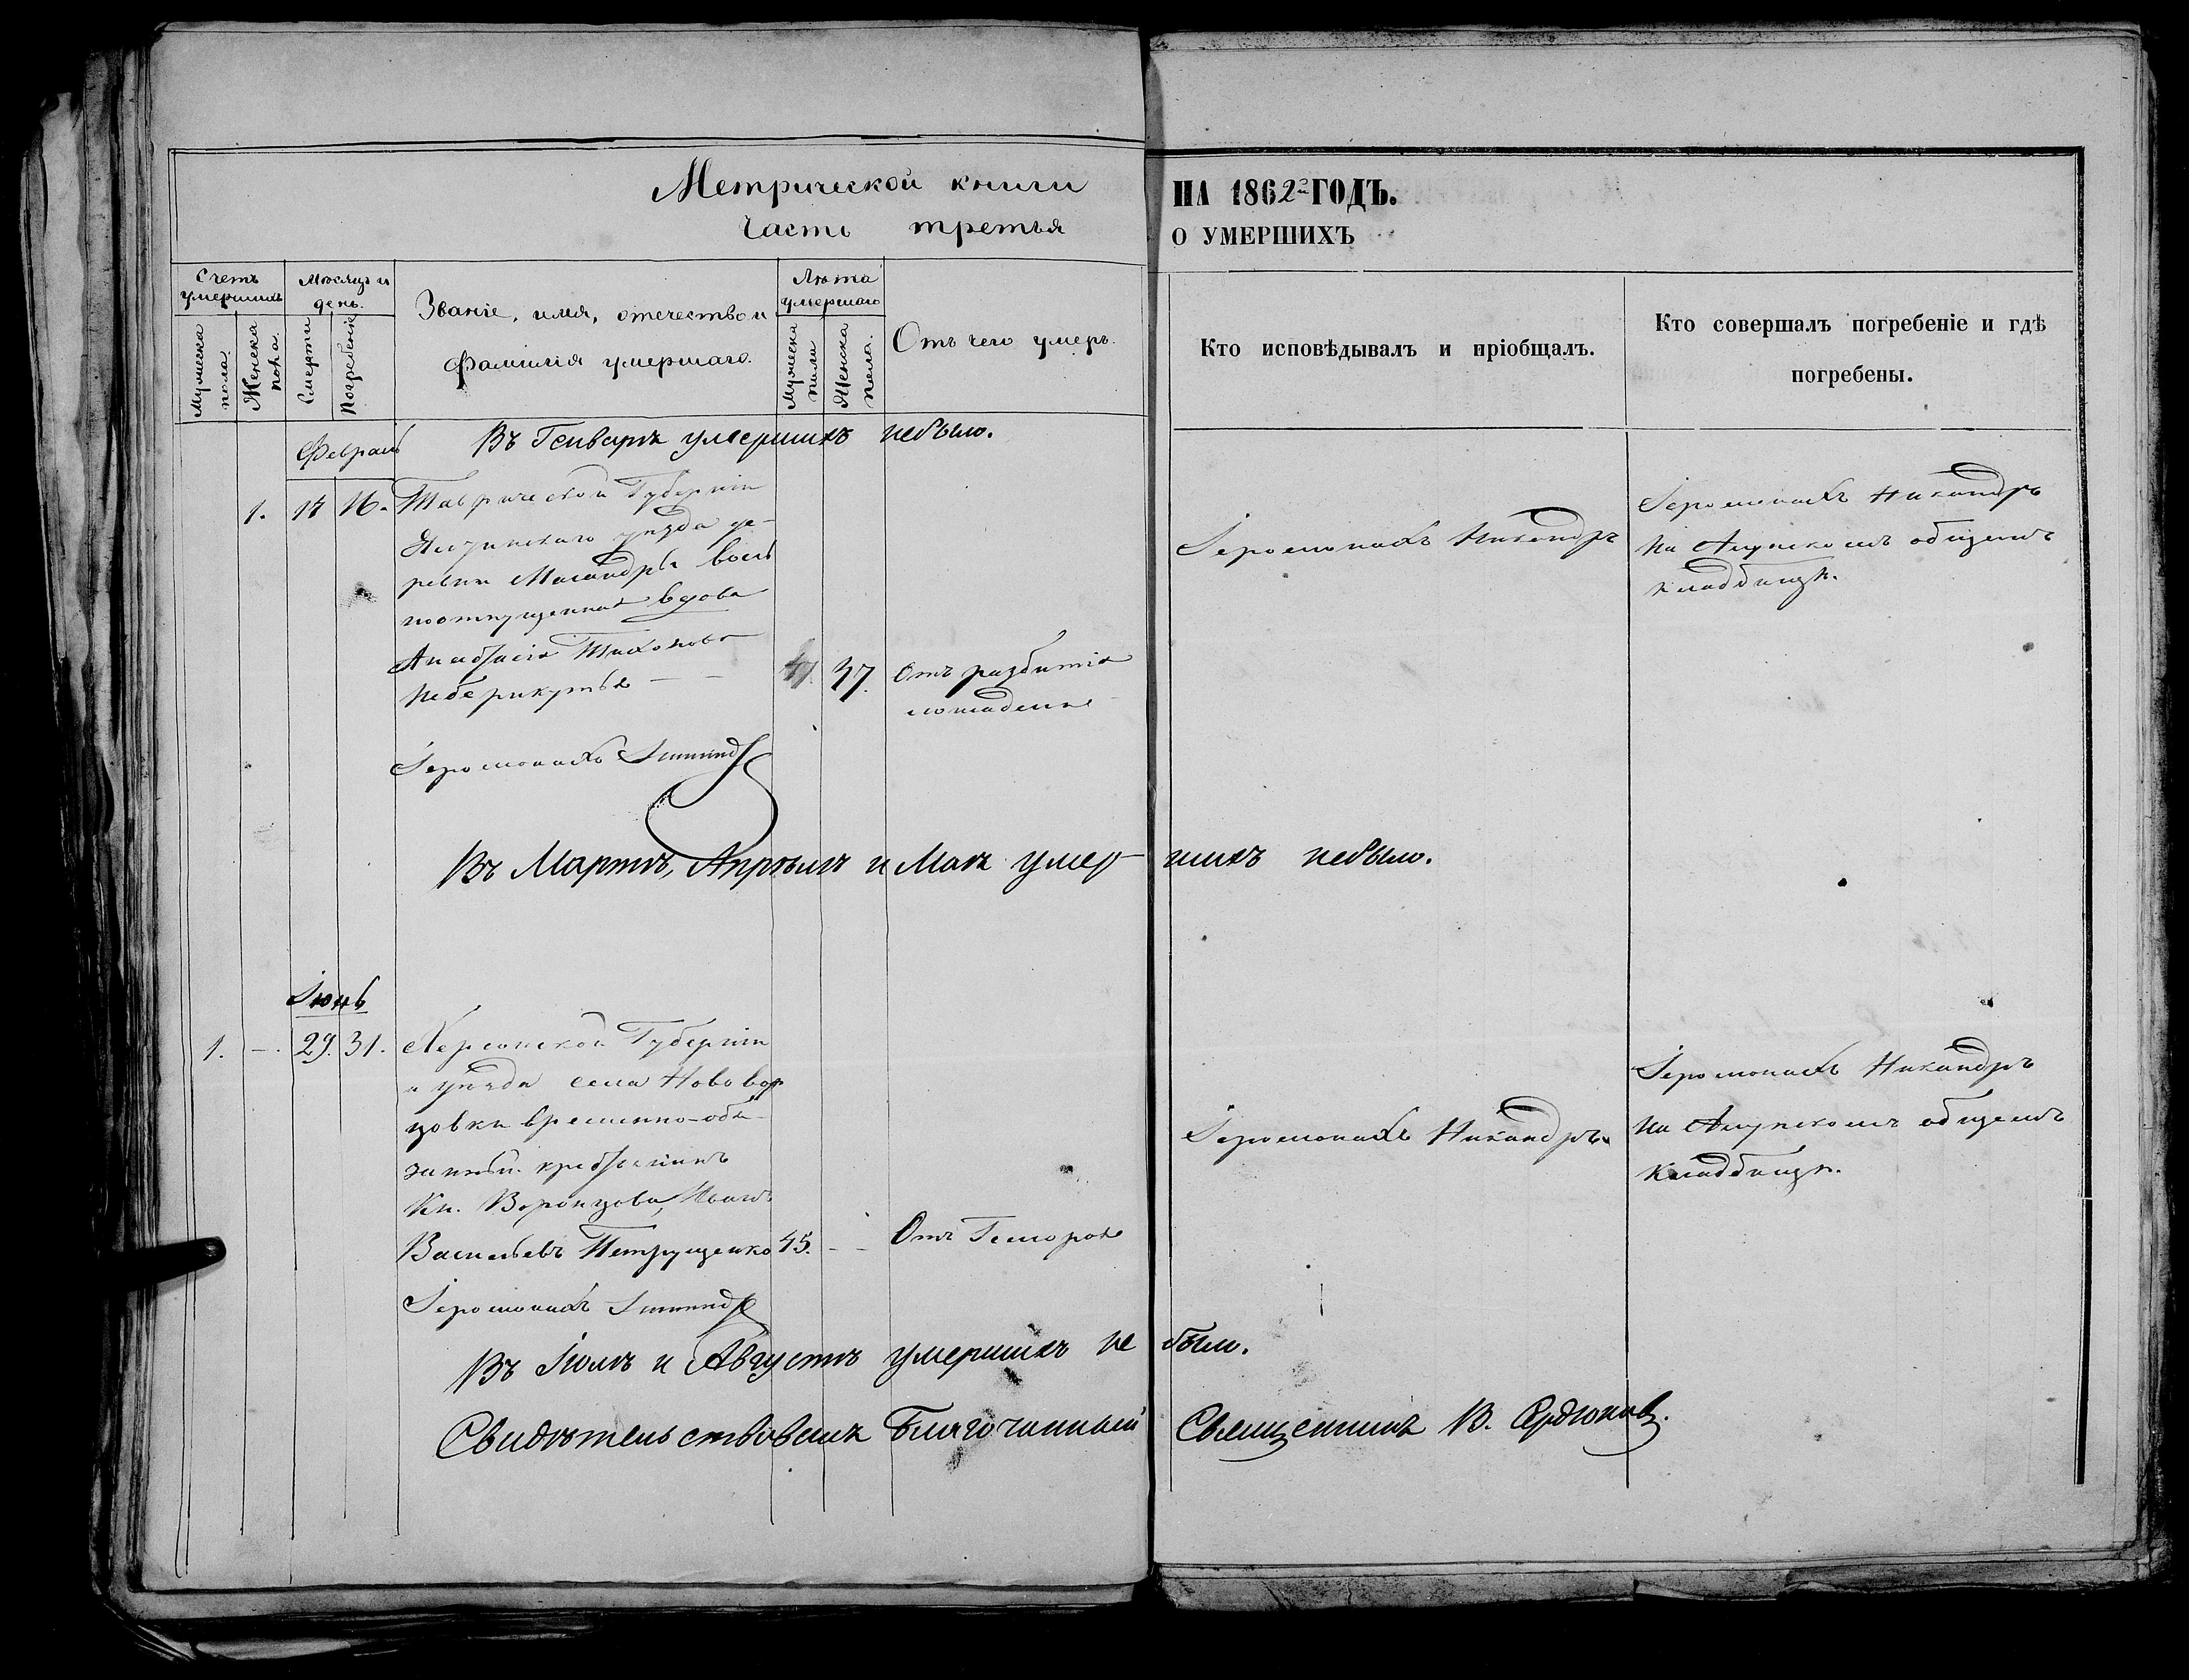 Метрической книги
часть третья
НА 1862й ГОДЪ.
О УМЕРШИХЪ
Счетъ умершихъ
Мужеска пола.
Женска пола.
Мѣсяцъ и день.
Смерти
Погребенія
Званіе, имя, отечество и
фамилія умершаго.
Лѣта умершаго
Мужеска пола
Женска пола.
Отъ чего умеръ.
Кто исповѣдывалъ и пріобщалъ.
Кто совершалъ погребеніе и гдѣ
погребены.
Въ Генварѣ умершихъ небыло.
Февраль
1. 14 16. Таврической Губерніи
Ялтинскаго уѣзда де-
ревни Масандры воль
ноотпущенная вдова
Анастасія Тихонова
37. Отъ разбитія
лошадьми
Іеромонахъ Никандръ
Іеромонахъ Никандръ
на Алупскомъ общемъ
кладбищѣ.
Іеромонахъ
Въ Мартѣ, Апрѣлѣ и Маѣ умер- шихъ небыло.
Іюнь
1. - 29. 31. Херсонской Губерніи
и уѣзда села Нововор
цовки временно-обя-
занный крестьянинъ
Кн. Воронцова, Иванъ
Васильевъ Петрущенко 45. - Отъ Гемороя
Іеромонахъ Никандръ.
Іеромонахъ Никандръ
на Алупскомъ общемъ
кладбищѣ.
Іеромонахъ
Въ Іюлѣ и Августѣ умершихъ не было.
Свидѣтельствовалъ Благочинный Священникъ В. Сердюковъ.